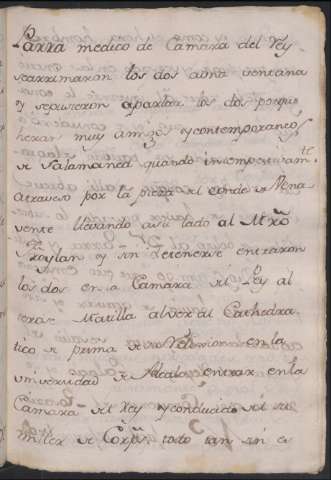 Parra medico de Camara del Rey
se arrimaron los dos a una ventana
y se pusieron a parlar los dos porque
heran muy amigos y contemporaneos
de Salamanca quando intempestivamte
atraveso por la pieza el conde de Vena
vente llevando a su lado al Mro
Froylan y sin detenerse entraron
los dos en la Camara del Rey al
verse Matilla al ver al Cathedra
tico de prima de su Relixion en la
universidad de Alcala entrar en la
Camara del Rey y conducido del su
miller de Corps todo tan sin e